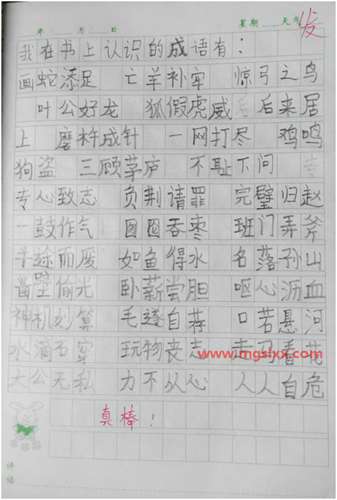 年 月 日 星期 天气
我在书上认识的成语有：
画蛇添足 亡羊补牢 惊弓之鸟
叶公好龙 狐假虎威 后来居
上 磨杵成针 一网打尽 鸡鸣
狗盗 三顾茅庐 不耻下问
专心致志 负荆请罪 完璧归赵
一鼓作气 囫囵吞枣 班门弄斧
半途而废 如鱼得水 名落孙山
凿壁偷光 卧薪尝胆 呕心沥血
神机妙算 毛遂自荐 口若悬河
水滴石穿 玩物丧志 走马看花
www.mgshxx.com
大公无私 力不从心 人人自危
真棒！
评语